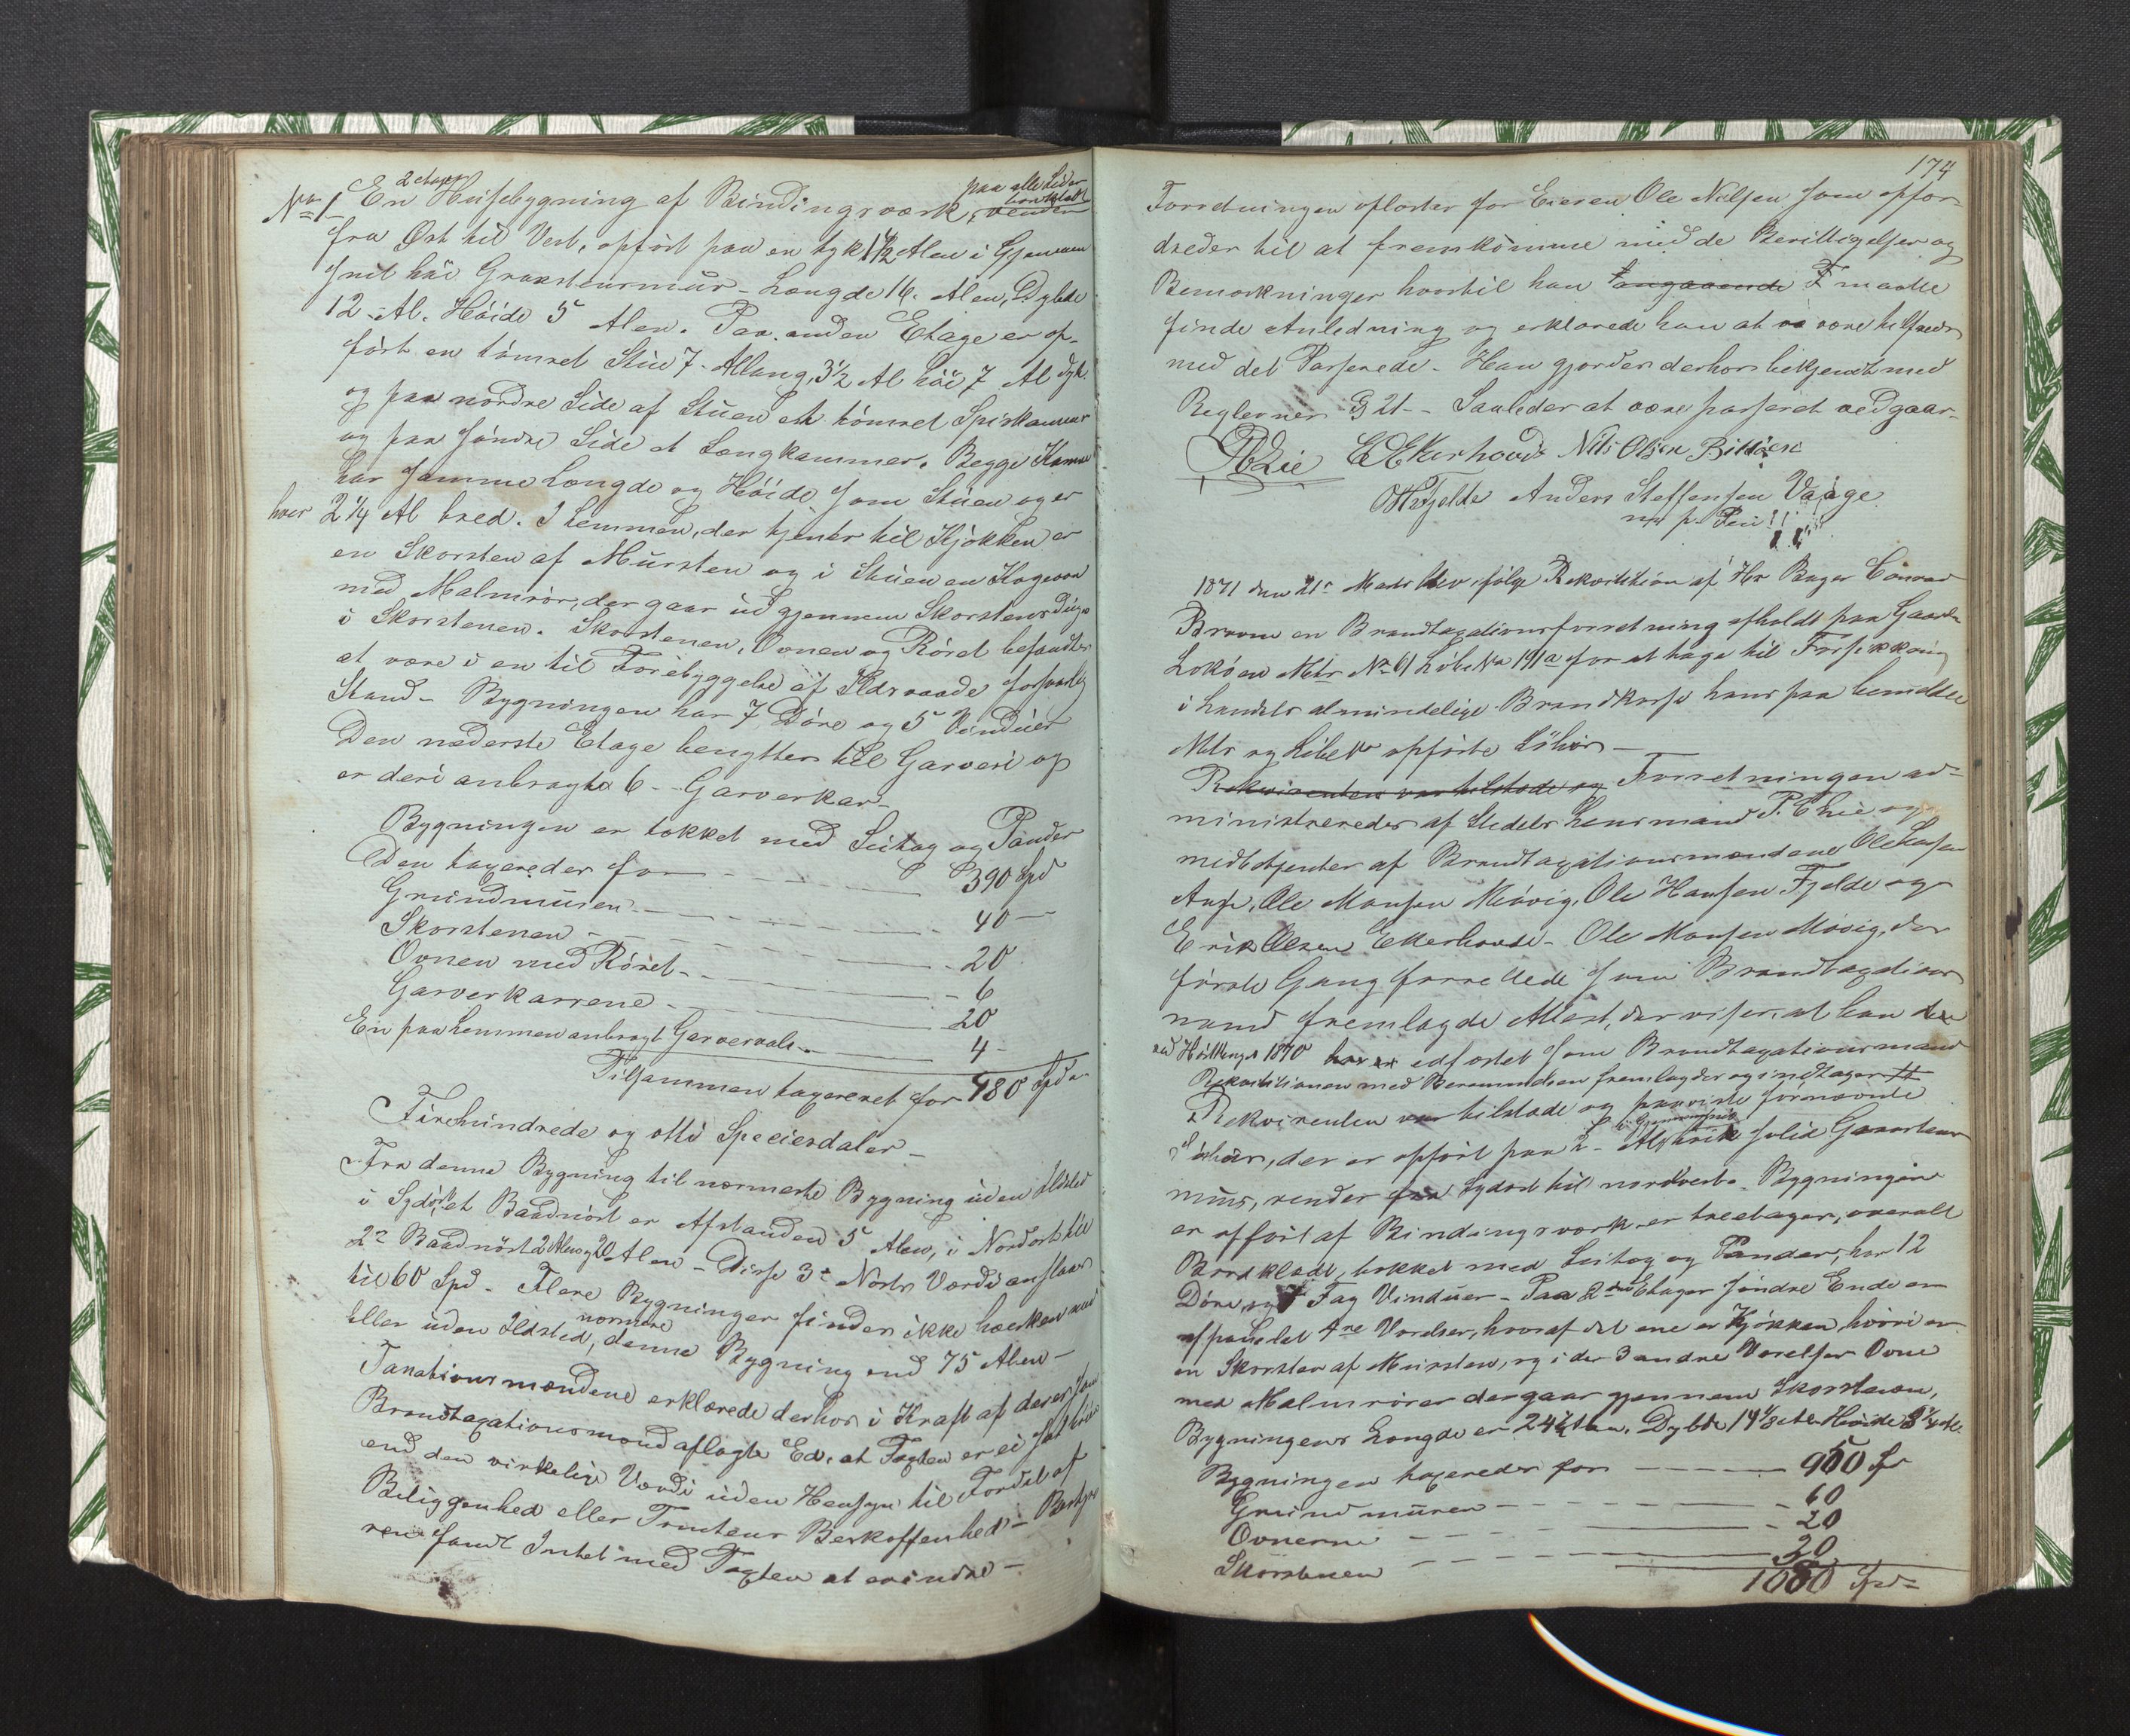 No 1 En 2 etages Huusebygning af Bindingsværk, paa alle Sider bordklædt, vender
fra Øst til Vest, opført paa en tyk 1 1/2 Alen i Gjennem
snit høi Graasteensmuur - Længde 16. Alen, Dybde
12 Al. Høide 5 Alen. Paa anden Etage er op-
ført en tømret Stue 7 Al lang, 3 1/2 Al høi 7 Al dyb.
og paa nordre Side af Stuen et tømret Spiskammer
og paa søndre Side et Sengkammer. Begge Kamre
har samme Længde og Høide som Stuen og er
hver 2 1/4 Al bred. I Lemmen, der tjener til Kjøkken er
en Skorsten af Mursten og i Stuen en Kogeovn
med Malmrør, der gaar ud gjennem Skorstens
i Skorstenen. Skorstenen, Ovnen og Røret befandtes
at være i en til Forebyggelse af Ildsvaade forsvarlig
Stand - Bygningen har 7 Døre og 5 Vinduer
Den nederste Etage benyttes til Garveri og
er deri anbragte 6 - Garverkar -
Bygningen er tækket med Seitag og Pander
Den taxeredes for - 390 Spd
Grundmuren - 40 -
Skorstenen - 20
Ovnen med Røret - 6
Garverkarrene - 20
En paa Lemmen anbragt Garver - 4 -
Tilsammen taxeret for 480 Spd.
Firehundrede og otti Speciesdaler -
Fra denne Bygning til nærmeste Bygning uden Ildsted
i Sydøst, et Baadnøst er Afstanden 5 Alen, i Nordost til
2de Baadnøst 2 Alen og 20 Alen - Disse 3de Nøsts Værdi ansloges
til 60 Spd - Flere Bygninger findes ikke hverken med
eller uden Ildsted, nærmere denne Bygning end 75 Alen -
Taxationsmændene erklærede derhos i Kraft af deres som
Brandtaxationsmænd aflagte Ed, at Taxten er ei sat høiere
end den virkelige Værdi uden Hensyn til Fordel af
Beliggenhed eller Tomtens Beskaffenhed - Besty-
reren fandt Intet med Taxten at erindre -
174
Forretningen oplæstes for Eieren Ole Nilsen som opfor-
dredes til at fremkomme med de Berigtigelser og
Bemærkninger hvortil han angaaende F maatte
finde Anledning og erklærede han at være tilfreds
med det Passerede. Han gjordes derhos bekjendt med
Reglernes § 21 - Saaledes at være passeret vedgaar -
PELie E E Ekerhovd Nils Olsen Bildøen
OHFjelde Anders Steffensen Vaage
m. p. Pen
1871 den 21de Marts blev ifølge Rekvisition af Hr Bager Conrad
en Brandtaxationsforretning afholdt paa Gaarden
Lokøen Matr No 61 Løbe No 191a for at tage til Forsikkring
i Landets almindelige Brandkasse hans paa bemeldte
Matr og Løbe No opførte Søhus -
Rekvirenten var tilstede og Forretningen ad-
ministreredes af Stedets Lensmand P. E Lie og
medbetjentes af Brandtaxationsmændene Ole
Ole Monsen Møvig, Ole Hansen Fjelde og
Erik Olsen Ekerhovd - Ole Monsen Møvig, der
første Gang forrettede som Brandtaxations
mand fremlagde Attest, der viser, at han
ved Høstthinget 1870 har edfæstet som Brandtaxationsmand
Rekvisitionen med Berammelsen fremlagdes og indtages
Rekvirenten var tilstede og paaviste fornævnte
Søhus, der er opført paa 2 - Al i Gjennemsnit solid Graasteens
muur, vender fra Sydost til nordvest. Bygningen
er opført af Bindingsværk er toetages, overalt
Bordklædt, tækket med Seitag og Pander, har 12
Døre, og 7 Fag Vinduer - Paa 2den Etages søndre Ende er
afpanelet 4re Værelser, hvoraf det ene er Kjøkken, hvori er
en Skorsten af Mursten, og i de 3 andre Værelser Ovne
med Malmrører der gaar gjennem Skorstenen,
Bygningens Længde er 24 Alen, Dybde 14 1/8 Alen Høide 8 3/4 Al.
Bygningen taxeredes for - 950 Sp
Grundmuren - 60
Ovnerne - 20
Skorstenen - 30
1080 Spd